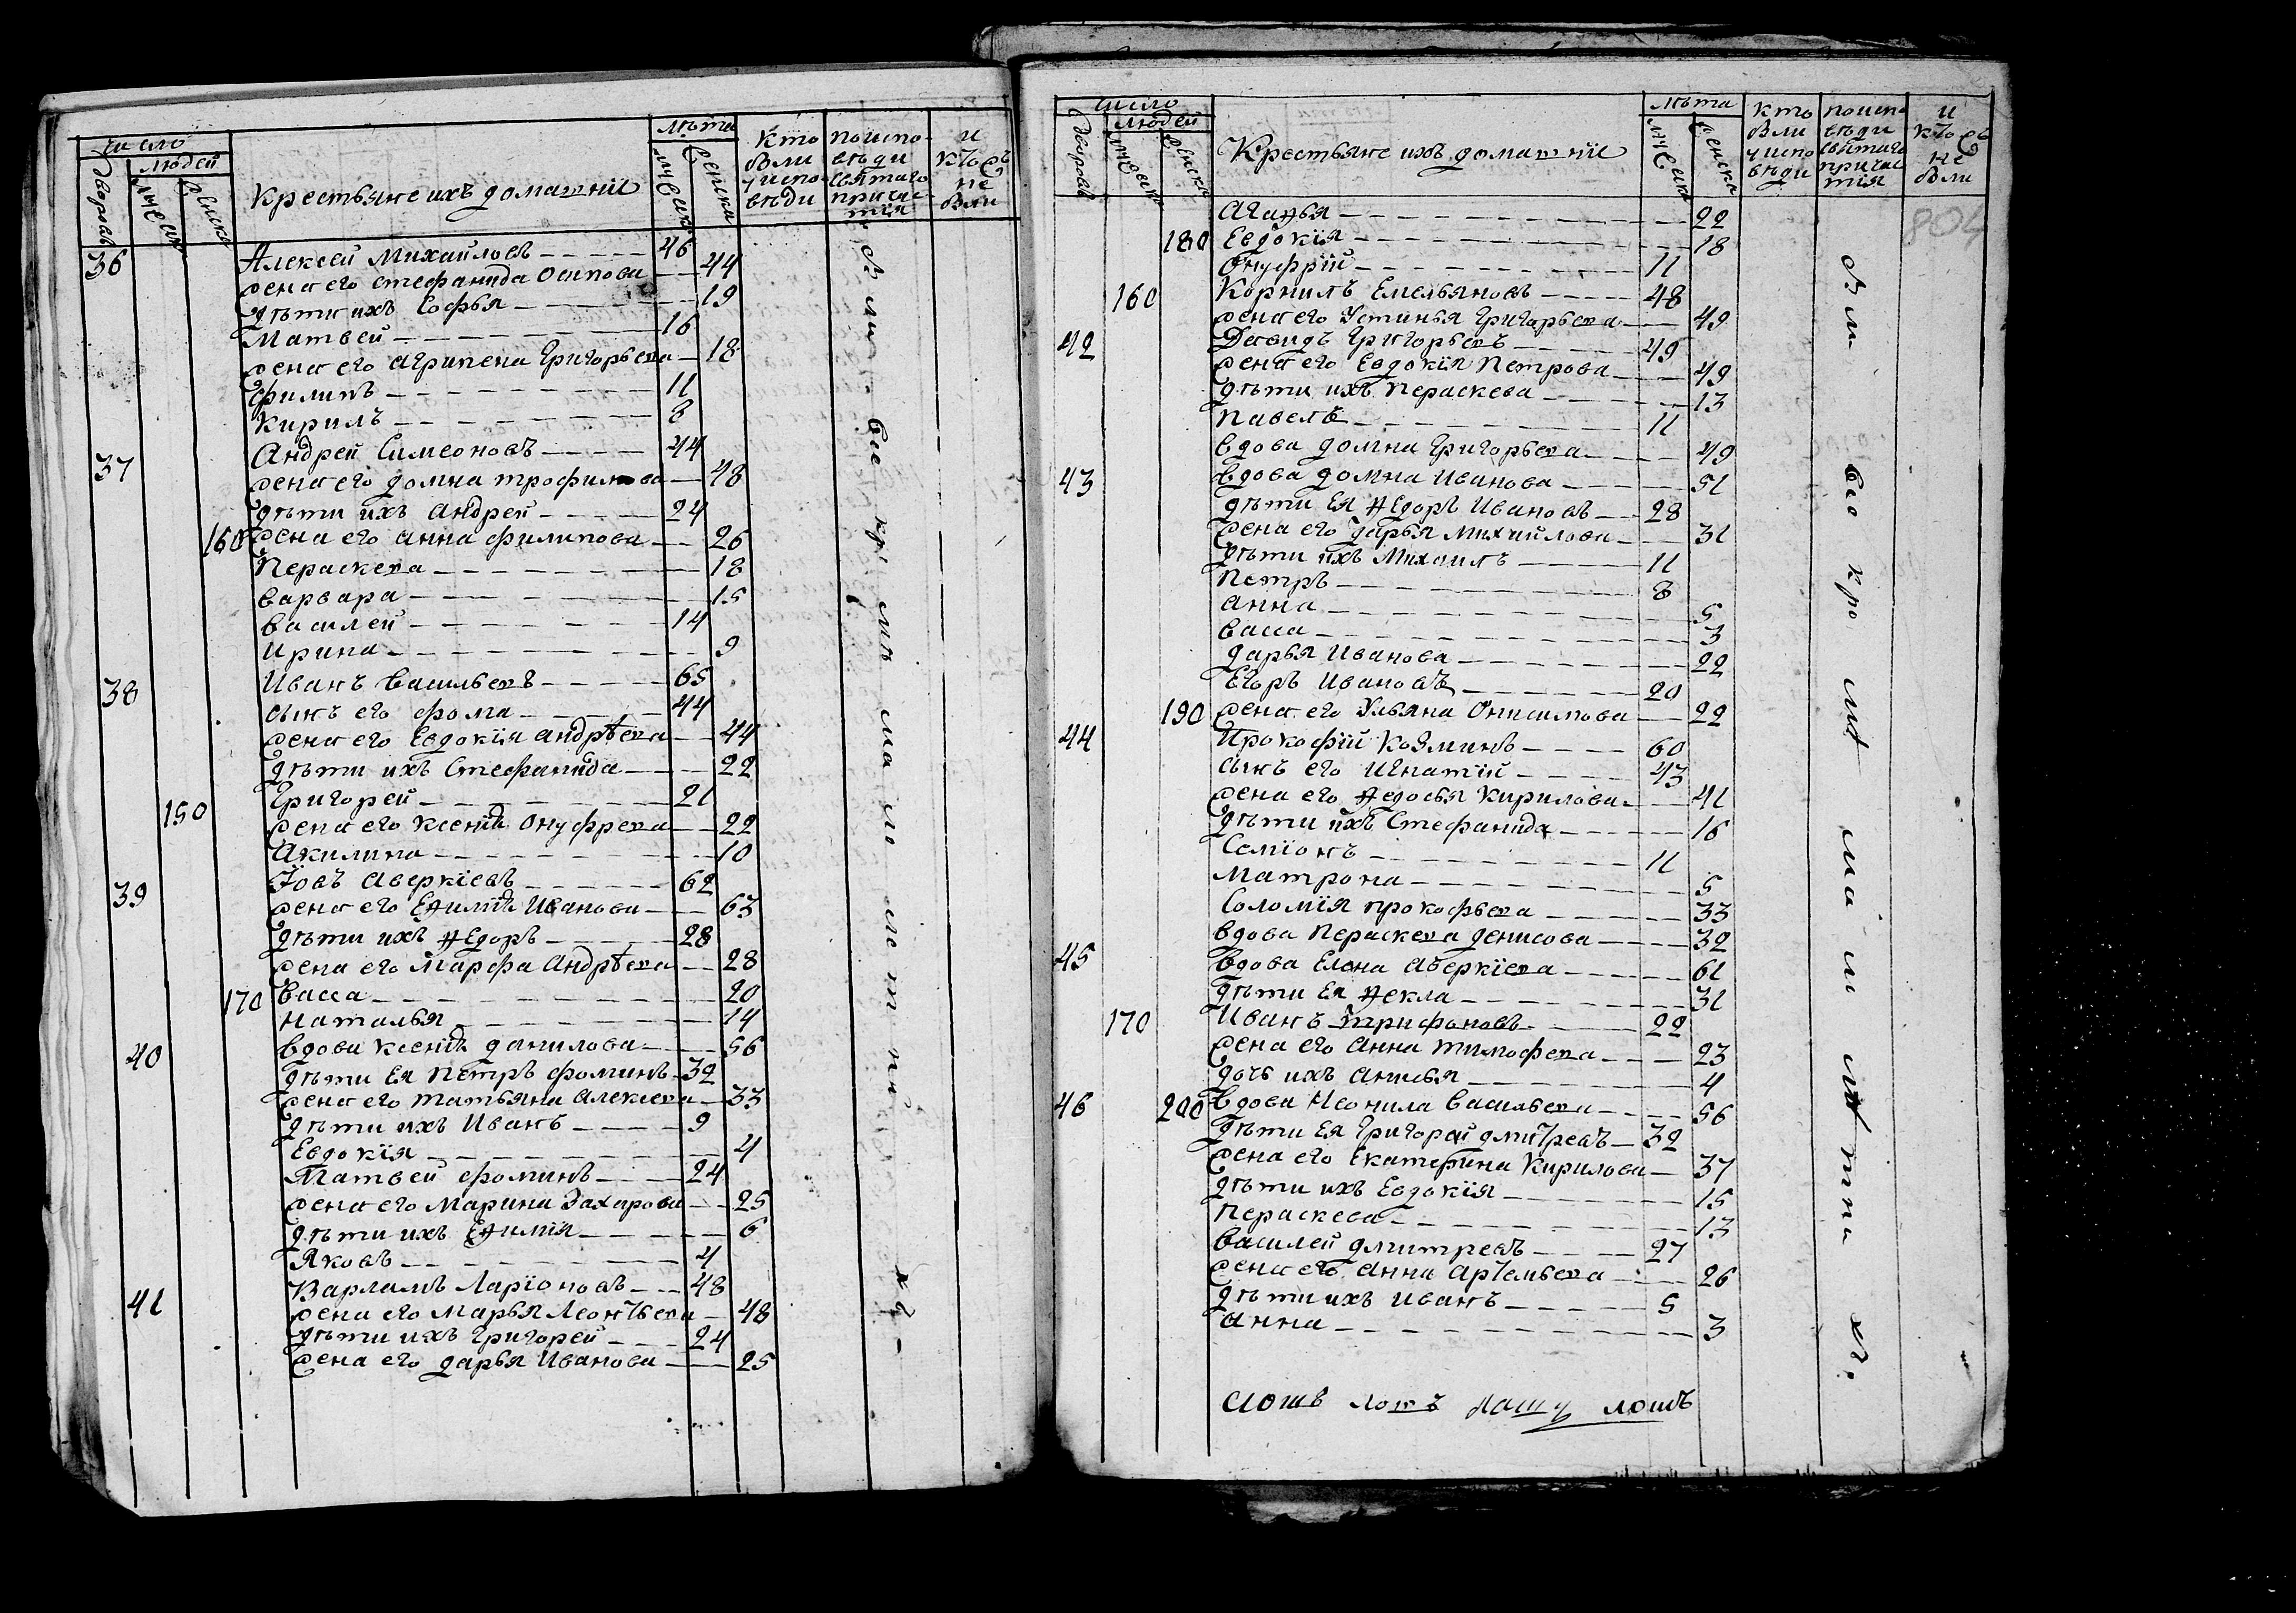 число
людей
дворовъ
мужск
женска
Крестьяне ихъ домашнии
лѣта
мужск
женска
кто были у исповѣди
по исповѣди святаго причастія
и кто жъ не были
36 Алексей Михайловъ 46
жена его Стефанида Осипова 44
дѣти ихъ Софья 19
Матвей 16
жена его Агрипена Григорьева 18
Филипъ 11
Кирилъ 8
37 Андрей Симеоновъ 44
жена его Домна Трофимова 48
дѣти ихъ Андрей 24
160 жена его Анна Филипова 26
Пераскева 18
Варвара 15
Василей 14
Ирина 9
38 Иванъ Васильевъ 65
сынъ его Фома 44
жена его Евдокія Андрѣева 44
дѣти ихъ Стефанида 22
Григорей 21
150 жена его Ксенія Онуфрева 22
Акилина 10
39 Іовъ Аверкіевъ 62
жена его Ефимія Иванова 63
дѣти ихъ Ѳедоръ 28
жена его Марфа Андрѣева 28
170 Васса 20
Наталья 14
40 вдова Ксенія Данилова 56
дѣти ея Петръ Фоминъ 32
жена его Татьяна Алексева 33
дѣти ихъ Иванъ 9
Евдокія 4
Матвей Фоминъ 24
жена его Марина Захарова 25
дѣти ихъ Еѳимія 6
Яковъ 4
41 Варламъ Ларіоновъ 48
жена его Марья Леонтьева 48
дѣти ихъ Григорей 24
жена его Дарья Иванова 25
были все кромѣ малолетнихъ
число
людей
дворовъ
мужск
женска
Крестьяне ихъ домашнии
лѣта
мужск
женска
кто были у исповѣди
по исповѣди святаго причастія
и кто жъ не были
804
Агафья 22
180 Евдокія 18
Онуфрій 11
160 Корнилъ Емельяновъ 48
жена его Устинья Григорьева 49
42 Давидъ Григорьевъ 49
жена его Евдокія Петрова 49
дѣти ихъ Пераскева 13
Павелъ 11
вдова Домна Григорьева 49
43 вдова Домна Иванова 51
дѣти ея Ѳедоръ Ивановъ 28
жена его Дарья Михайлова 31
дѣти ихъ Михаилъ 11
Петръ 8
Анна 5
Васса 3
Дарья Иванова 22
Егоръ Ивановъ 20
190 жена его Ульяна Онисимова 22
44 Прокофій Козминъ 60
сынъ его Игнатій 43
жена его Ѳедосья Кирилова 41
дѣти ихъ Стефанида 16
Семіонъ 11
Матрона 5
Соломія Прокофьева 33
вдова Пераскева Денисова 32
45 вдова Елена Аверкіева 61
дѣти ея Ѳекла 31
170 Иванъ Трифоновъ 22
жена его Анна Тимофева 23
дочь ихъ Анисья 4
46 200 вдова Неонила Васильева 56
дѣти ея Григорей Дмитревъ 32
жена его Екатерина Кирилова 37
дѣти ихъ Евдокія 15
Пераскева 13
Василей Дмитревъ 27
жена его Анна Артемьева 26
дѣти ихъ Иванъ 5
Анна 3
были все кроме малолетнихъ